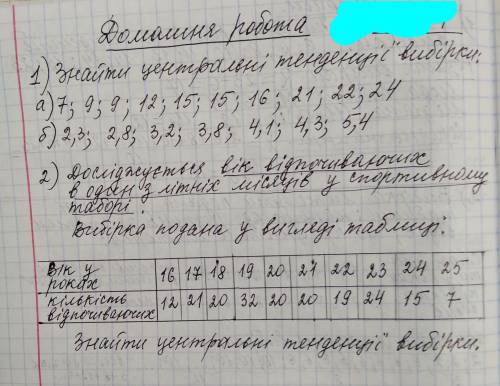 Домашня робота
1) Знайти центральні тенденції вибірки:
а) 7; 9; 9; 12; 15; 15; 16; 21; 22; 24
б) 2,3; 2,8; 3,2; 3,8; 4,1; 4,3; 5,4
2) Досліджується вік відпочиваючих
в один з літніх місяців у спортивному
таборі.
Вибірка подана у вигляді таблиці.
Вік у роках 16 17 18 19 20 21 22 23 24 25
кількість відпочиваючих 12 21 20 32 20 20 19 24 15 7
Знайти центральні тенденції вибірки.